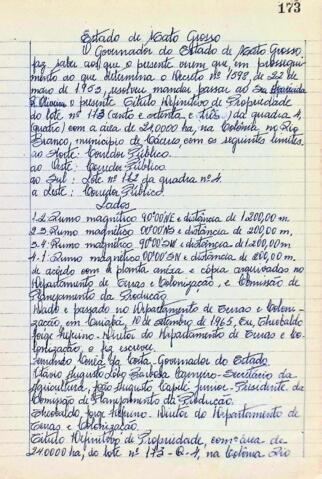 173
Estado de Mato Grosso
O Governador do Estado de Mato Grosso,
faz saber aos que o presente virem que, em prossegui-
mento ao que determina o Decreto nº 1598, de 22 de
maio de 1953, resolveu mandar passar ao Snr. Aparecido
de Oliveira o presente Título Definitivo de Propriedade
do lote nº 173 (cento e setenta e três) da quadra 4,
(quatro) com a área de 24,0000 ha, na Colônia no Rio
Branco, município de Cáceres, com os seguintes limites:
ao Norte: Corredor Público.
ao Oeste: Corredor Público.
ao Sul: Lote nº 172 da quadra nº 4.
a Leste: Corredor Público.
Lados
1.2. Rumo magnético 90º00'NE e distância de 1.200,00 m.
2.3. Rumo magnético 00º00'NS e distância de 200,00 m,
3.4. Rumo magnético 90º00'SW e distância de 1.200,00 m
4.1. Rumo magnético 00º00'SN e distância de 200,00 m,
de acordo com a planta anexa e cópia arquivadas no
Departamento de Terras e Colonização, e Comissão de
Planejamento da Produção.
Dado e passado no Departamento de Terras e Coloni-
zação, em Cuiabá, 10 de setembro de 1965, Eu,
Jorge Diretor do Departamento de Terras e Co-
lonização, o fiz escrever.
Fernando Corrêa da Costa - Governador do Estado
Otávio Augusto Barbosa - Secretário da
Agricultura, João Augusto Capilé Junior - Presidente da
Comissão de Planejamento da Produção.
Jorge Diretor do Departamento de
Terras e Colonização.
Título Definitivo de Propriedade, com a área de
24,0000 ha, do lote nº 173-Q-4, na Colônia Rio